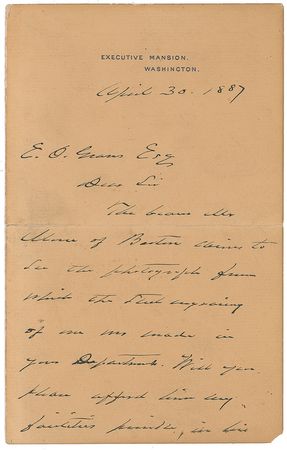 EXECUTIVE MANSION,
WASHINGTON.
April 30. 1887
E. O. Graves Esq
Dear Sir
The bearer Mr
of Boston desires to
see the photograph from
which the steel engraving
of me was made in
your Department. Will you
please afford him any
facilities possible, in his